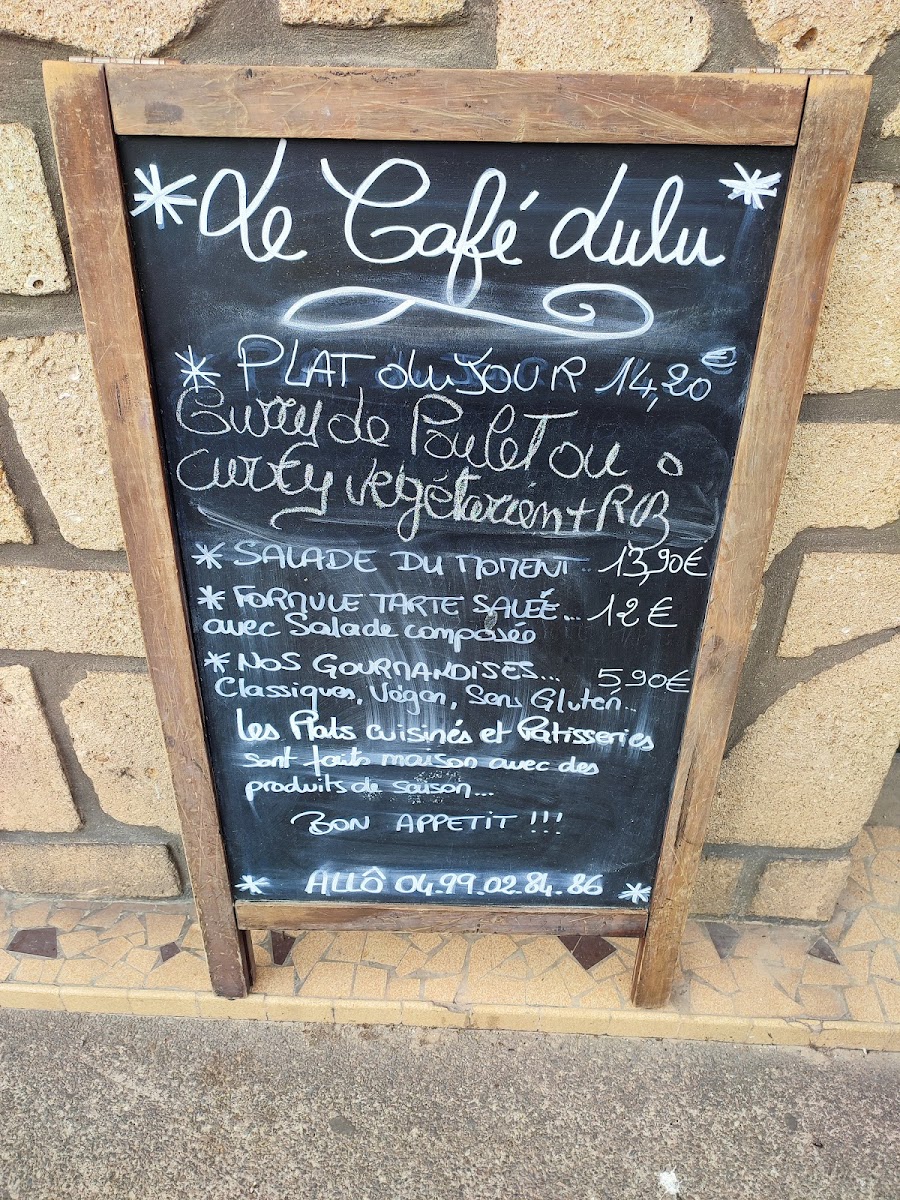 Le Café Lulu
PLAT du JOUR 14,20€
Curry de Poulet ou
curry végétarien + RIZ
SALADE DU MOMENT 13,90€
FORMULE TARTE SALÉE... 12 €
avec Salade composée
NOS GOURMANDISES... 5,90€
Classiques, Végan, Sans Gluten...
Les Plats cuisinés et Patisseries
sont faits maison avec des
produits de saison...
BON APPETIT !!!
ALLÔ 04.99.02.84.86